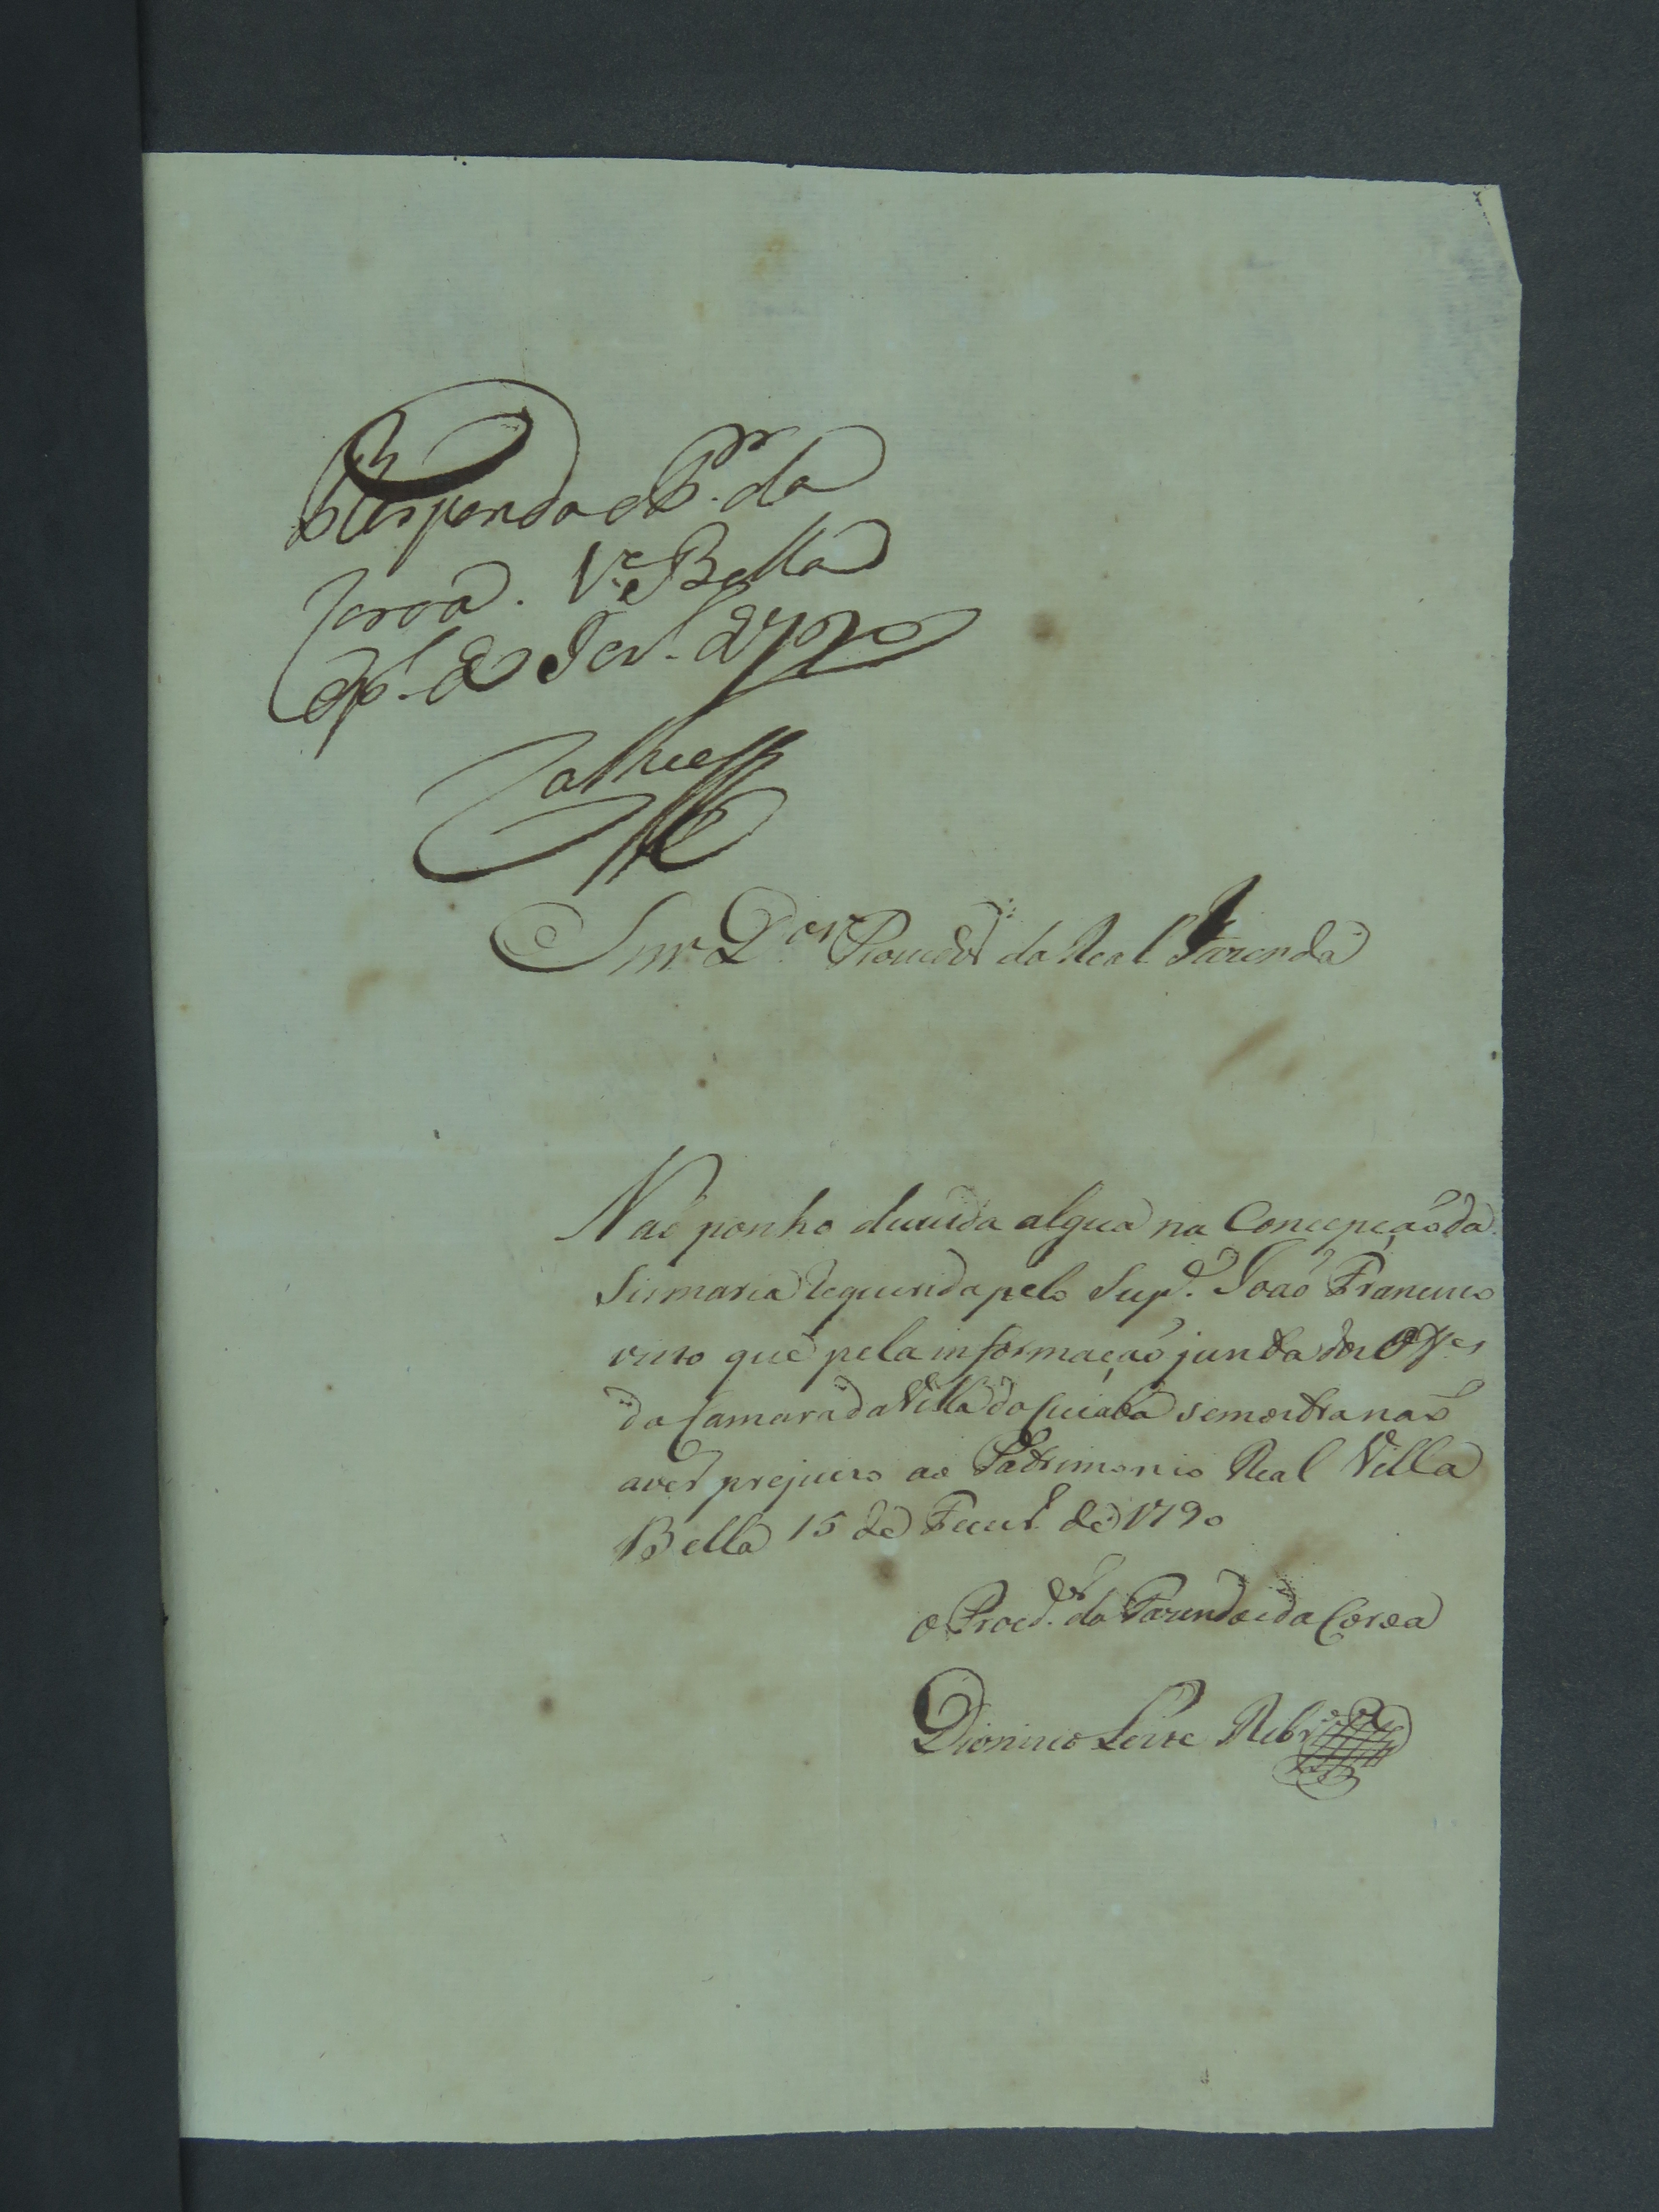 Responda o P.or da
Coroa. V.a Bella
de Fev.o de 1790
Snr. D.or Proued.or da Real Fazenda
Naõ ponho duuida algua na Concepçaõ da
Sismaria Requerida pelo Sup.e Joaõ Francisco
visto que pela informaçaõ junta dos Off.es
da Camara da Villa do Cuiaba se mostra naõ
aver prejuizo ao Patrimonio Real Villa
Bella 15 de Feuer.o de 1790
o Proc.dor da Fazenda e da Coroa
Dionizio Leite Ribr.o